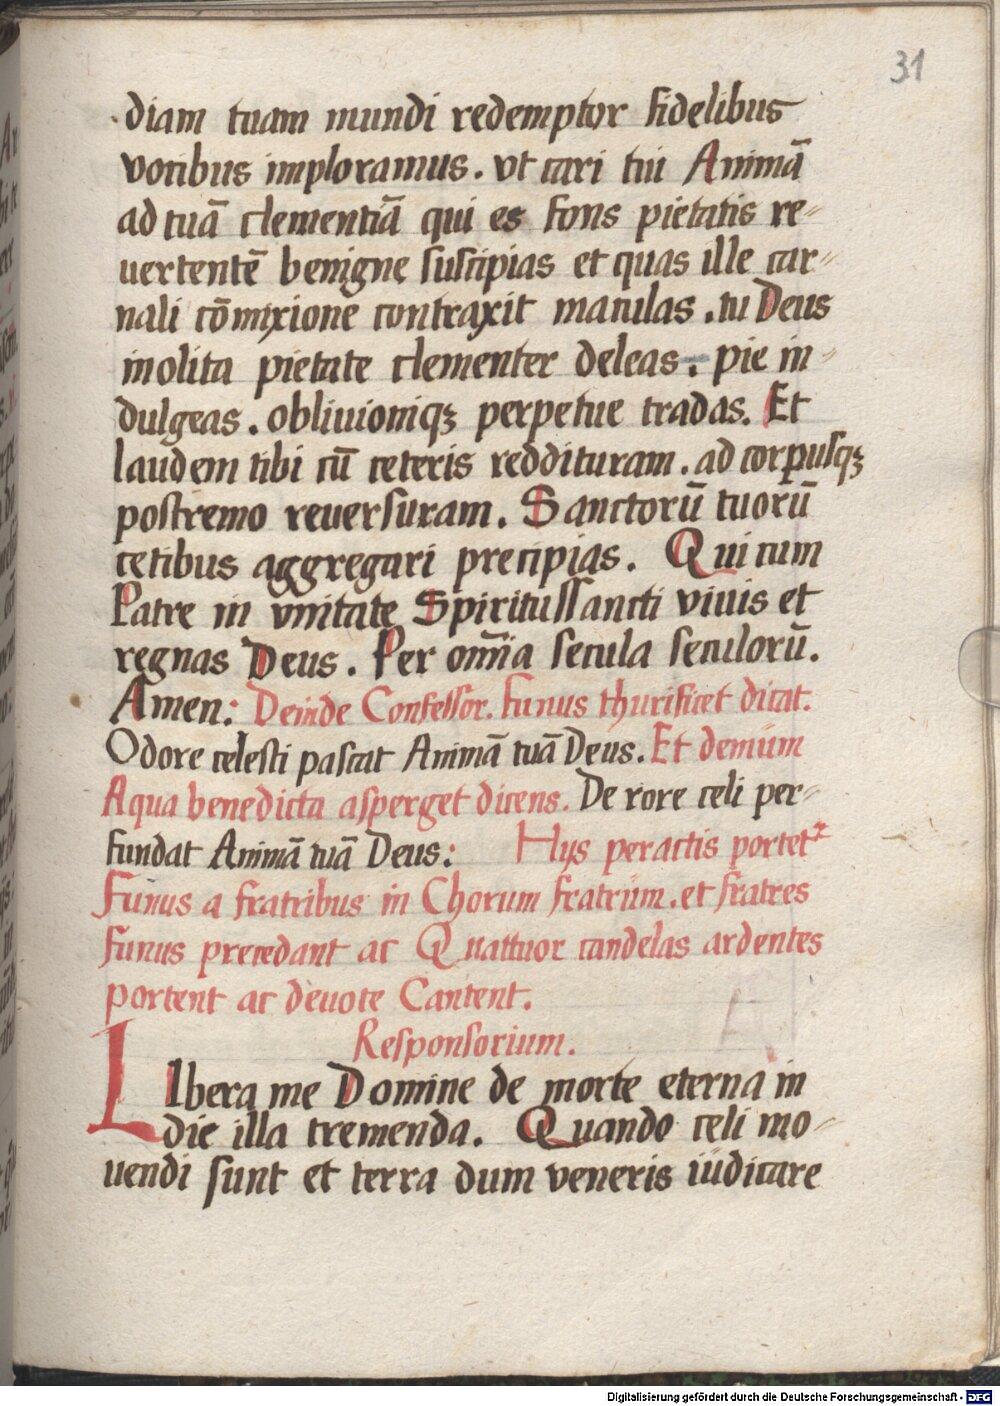 31
diam tuam mundi redemptor fidelibus
votibus imploramus. vt cari tui Animā
ad tuā clementiā qui es fons pietatis re-
uertentē benigne suscipias et quas ille car-
nali cōmixione contraxit maculas. tu Deus
inolita pietate clementer deleas. pie in-
dulgeas. obliuioniqꝫ perpetue tradas. Et
laudem tibi cū ceteris reddituram. ad corpusqꝫ
postremo reuersuram. Sanctorū tuorū
cetibus aggregari precipias. Qui cum
Patre in vnitate Spiritussancti viuis et
regnas Deus. Per om̄ia secula seculorū.
Amen: Deinde Confessor. Funus thurificet dicat:
Odore celesti pascat Animā tuā Deus. Et demum
Aqua benedicta asperget dicens. De rore celi per-
fundat Animā tuā Deus: Hijs peractis portetᷣ
Funus a fratribus in Chorum fratrum. et fratres
funus precedant ac Quattuor candelas ardentes
portent ac deuote Cantent.
Responsorium.
LIbera me Domine de morte eterna in
die illa tremenda. Quando celi mo-
uendi sunt et terra dum veneris iudicare
Digitalisierung gefördert durch die Deutsche Forschungsgemeinschaft - DFG